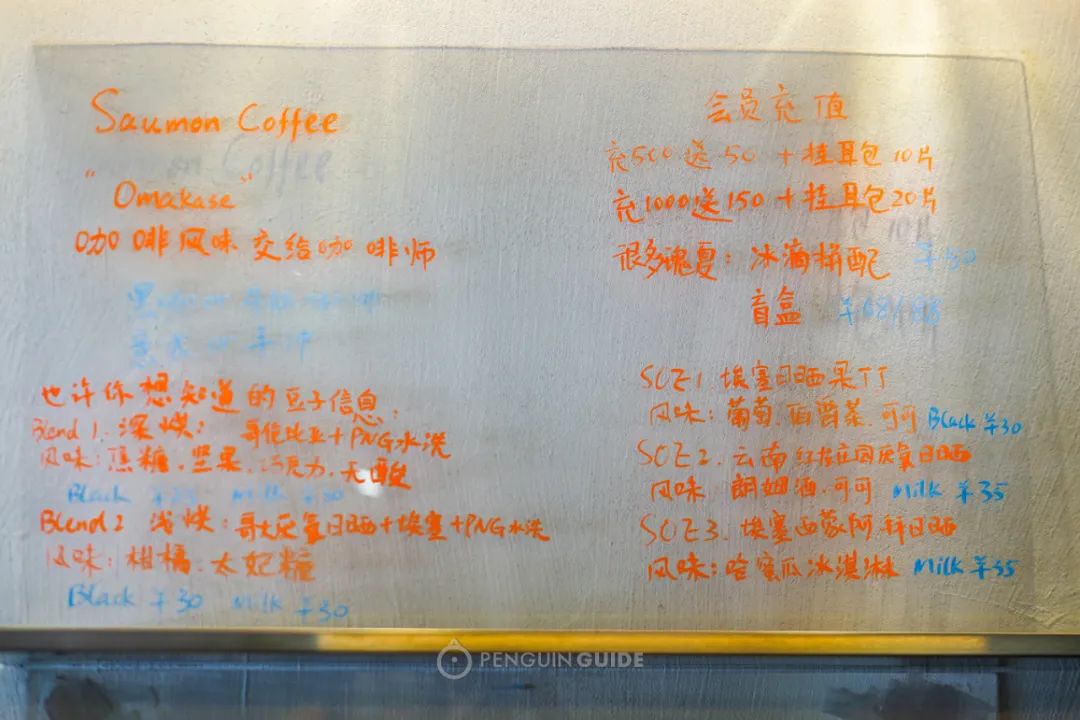 Saumon Coffee
"Omakase"
咖啡风味 交给咖啡师
黑
手冲
也许你想知道的豆子信息:
Blend 1. 深烘: 哥伦比亚+PNG水洗
风味:焦糖.坚果.巧克力.无酸
Black Milk ¥30
Blend 2 浅烘: 哥大厌氧日晒+埃塞+PNG水洗
风味:柑橘.太妃糖
Black ¥30 Milk ¥30
会员充值
充500送50 + 挂耳包10片
充1000送150 + 挂耳包20片
很多瑰夏: 冰滴精配 ¥50
盲盒 ¥68/88
SOE1 埃塞日晒果丁丁
风味:葡萄.伯爵茶.可可 Black ¥30
SOE2. 云南 庄园厌氧日晒
风味 朗姆酒.可可 Milk ¥35
SOE3. 埃塞西蒙阿 日晒
风味:哈蜜瓜冰淇淋 Milk ¥35
PENGUIN GUIDE